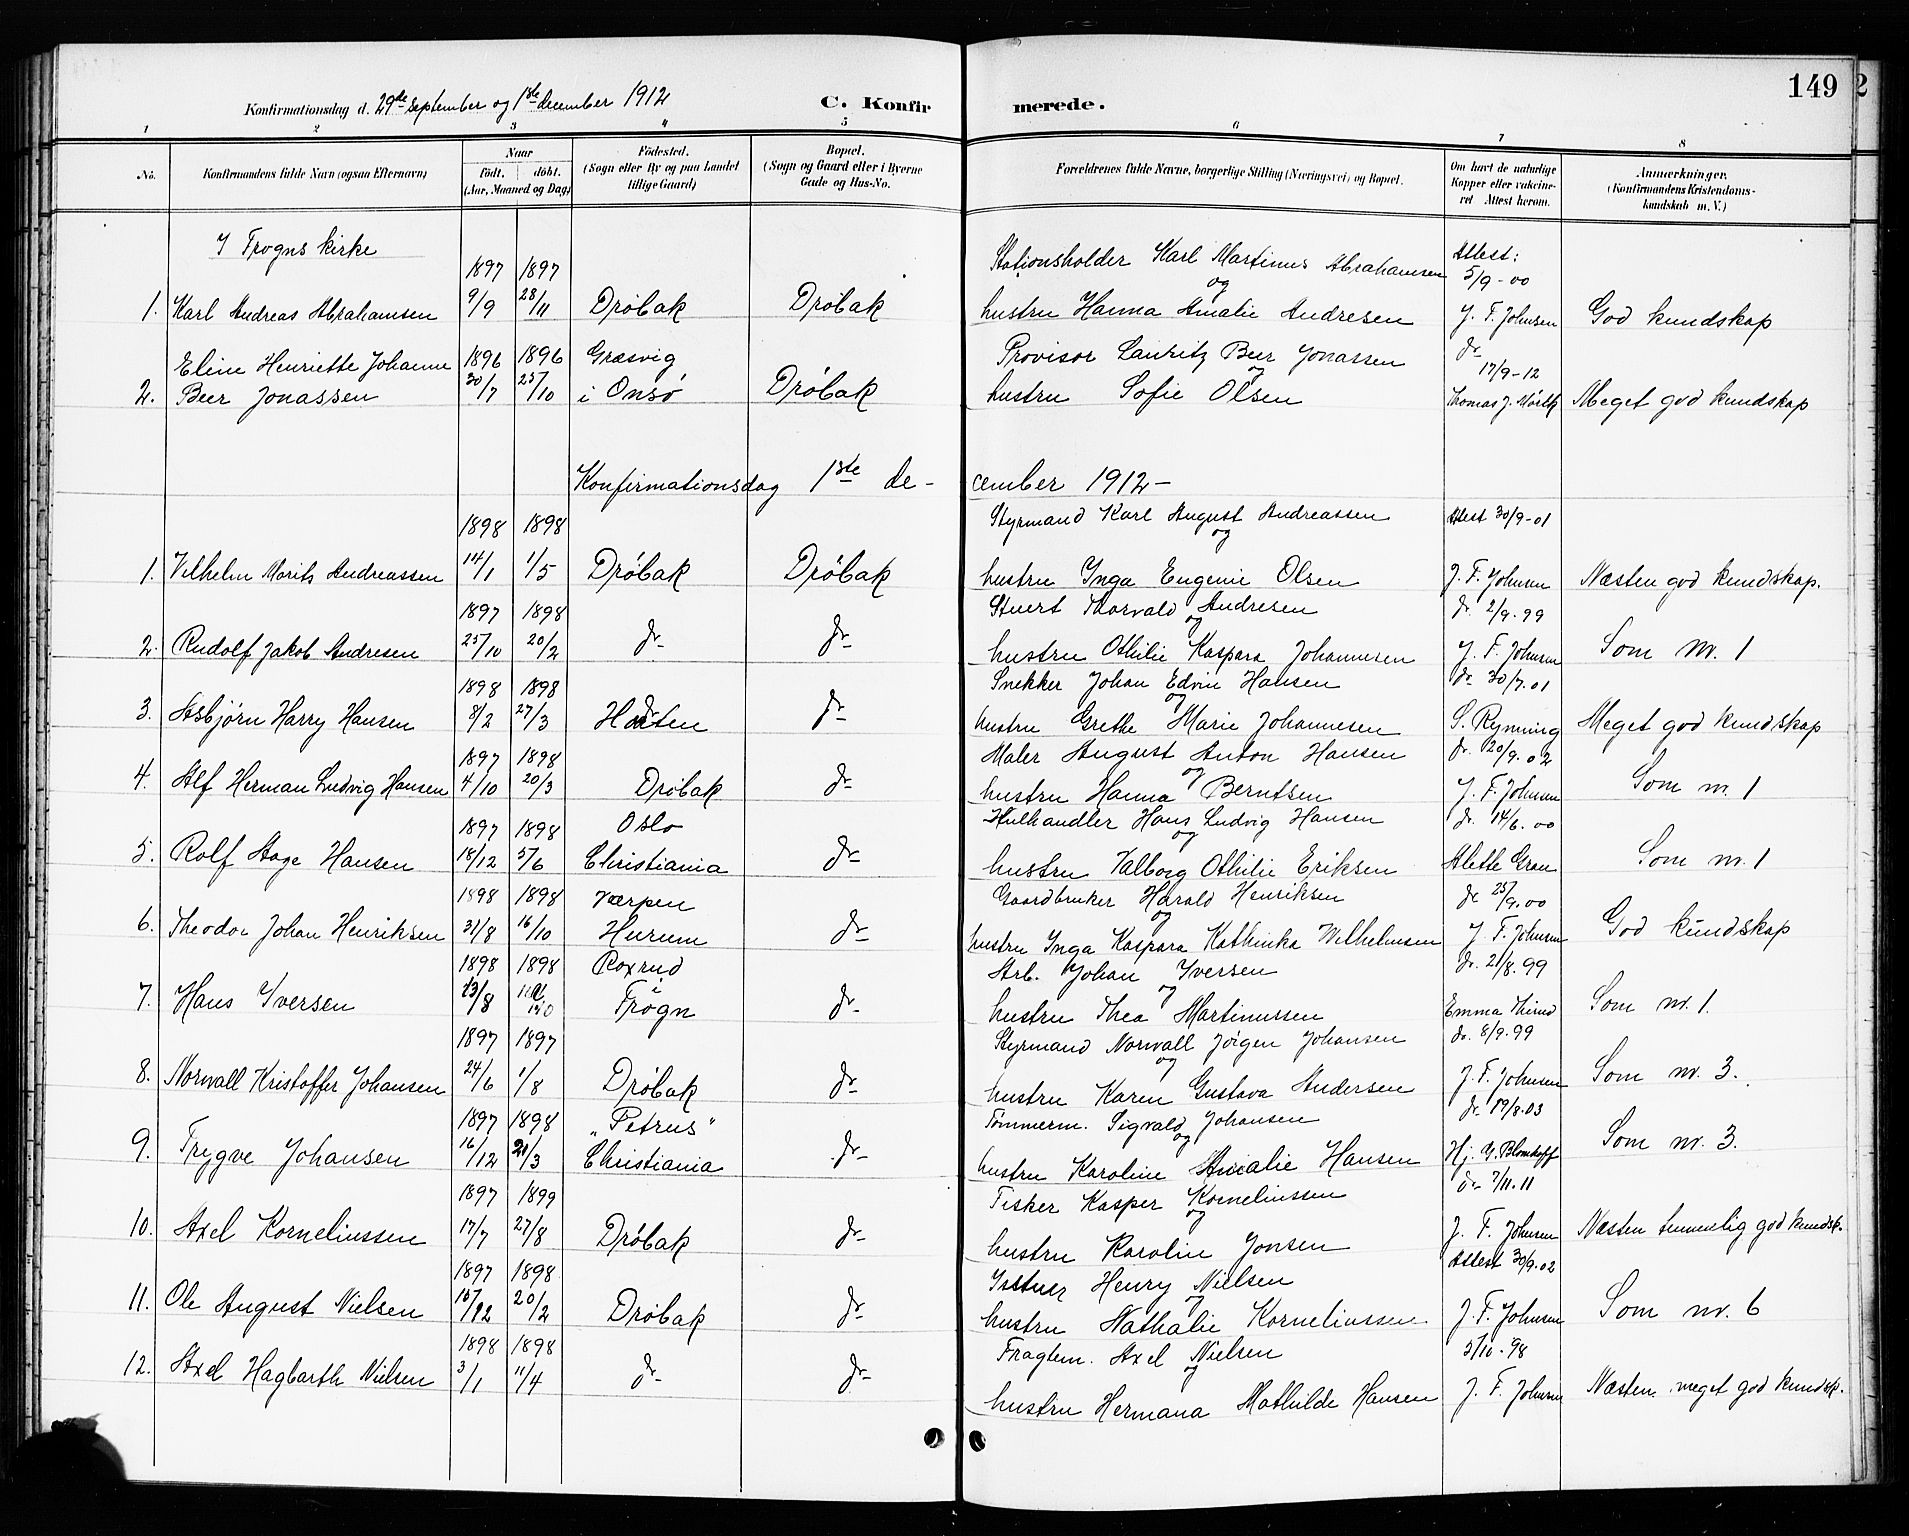 149
Konfirmationsdag d. 29de september og 1ste december 1912 C. Konfirmerede.
1 2 3 4 5 6 7 8
No. Konfirmandens fulde Navn (ogsaa Efternavn) Naar födt. döbt. (Aar, Maaned og Dag) Födested. (Sogn eller By og paa Landet tillige Gaard) Bopæl. (Sogn og Gaard eller i Byerne Gade og Hus-No. Forældrenes fulde Navne, borgerlige Stilling (Næringsvei) og Bopæl. Om havt de naturlige Kopper eller vaccineret Attest herom. Anmerkninger. (Konfirmandens Kristendomskundskab m. V.)
I Frogns kirke
1897 1897 Stationsholder Karl Martinus Abrahamsen og Attest: 5/9-00
1. Karl Andreas Abrahamsen 9/9 28/11 Drøbak Drøbak hustru Hanna Amalie Andresen J. F. Johnsen God kundskap
Eline Henriette Johanne 1896 1896 Græsvig Provisor Lauritz Beer Jonassen og dr 17/9-12
2. Beer Jonassen 30/7 25/10 i Onsø Drøbak hustru Sofie Olsen Thomas J. Meget god kundskap
Konfirmationsdag 1ste december 1912-
1898 1898 Styrmand Karl August Andreassen og Attest 30/9-01
1. Vilhelm Morits Andreassen 14/1 1/5 Drøbak Drøbak hustru Inga Eugenie Olsen J. F. Johnsen Næsten god kundskap.
1897 1898 Stuert Thorvald Andresen og dr. 2/9-99
2. Rudolf Jakob Andresen 25/10 20/2 dr- dr- hustru Othilie Kaspara Johannesen J. F. Johnsen Som nr. 1
1898 1898 Snekker Johan Edvin Hansen og dr 30/7.01
3. Asbjørn Harry Hansen 8/2 27/3 dr- hustru Grethe Marie Johannesen S. Rynning Meget god kundskap
1897 1898 Maler August Anton Hansen og dr. 20/9.02
4. Alf Herman Ludvig Hansen 4/10 20/3 Drøbak dr- hustru Hanna Berntsen J. F. Johnsen Som nr. 1
1897 1898 Oslo Kulhandler Hans Ludvig Hansen og dr. 14/6.00
5. Rolf Aage Hansen 18/12 5/6 Christiania dr- hustru Valborg Othilie Eriksen Alette Som nr. 1
1898 1898 Værpen Gaardbruker Harald Henriksen og dr 25/9.00
6. Theodor Johan Henriksen 31/8 16/10 Hurum dr- hustru Inga Kaspara Kathinka Wilhelmsen J. F. Johnsen God kundskap
1898 1898 Roxrud i Arb. Johan Iversen og dr. 21/8.99
7. Hans Iversen 23/8 Frogn dr- hustru Thea Martinussen Emma Som nr. 1.
1897 1897 Styrmand Norvall Jørgen Johansen og dr. 8/9.99
8. Norvall Kristoffer Johansen 24/6 1/8 Drøbak dr- hustru Karen Gustava Andersen J. F. Johnsen Som nr. 3.
1897 1898 "Petrus" Tømmerm. Sigvald Johansen og dr. 19/8.03
9. Trygve Johansen 16/12 20/3 Christiania dr- hustru Karoline Amalie Hansen Hj. G. Som nr. 3.
1897 1899 Fisker Kasper Korneliussen og 7/11.11
10. Axel Korneliussen 17/7 27/8 Drøbak dr- hustru Karolin Jonsen J. F. Johnsen Næsten temmelig god kundsk.
1897 1898 Henry Nielsen og Attest 30/9.02
11. Ole August Nielsen 15/12 20/2 Drøbak dr- hustru Nathalie Korneliussen J. F. Johnsen Som nr. 6
1898 1898 Fragtem. Axel Nielsen og 5/10.98
12. Axel Hagbarth Nielsen 3/1 11/4 dr- dr- hustru Hermana Mathilde Hansen J. F. Johnsen Næsten meget god kundsk.